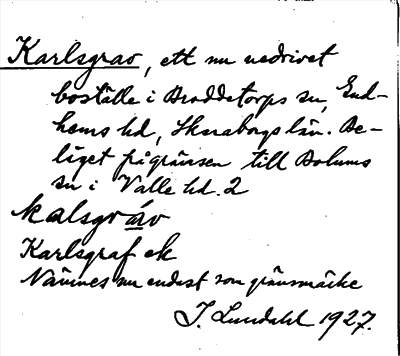 Karlsgrav, ett nu nedrivet
boställe i Broddetorps sn, Gud-
hems hd, Skaraborgs län. Be-
läget på gränsen till Bolums
sn i Valle hd. 2
kalsgráv
Karlsgraf ek
Nämnes nu endast som gränsmärke
J. Lundahl 1927.